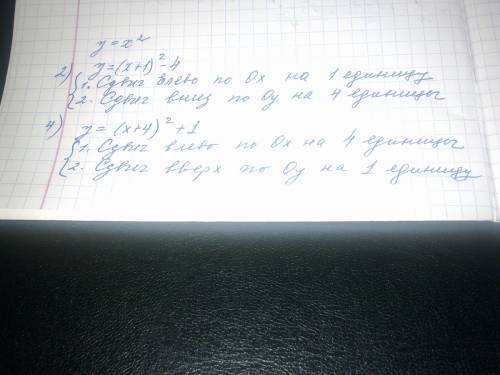 y = x²
2) y = (x+1)² - 4
1. Сдвиг влево по Ox на 1 единицу
2. Сдвиг вниз по Oy на 4 единицы
4) y = (x+4)² + 1
1. Сдвиг влево по Ox на 4 единицы
2. Сдвиг вверх по Oy на 1 единицу